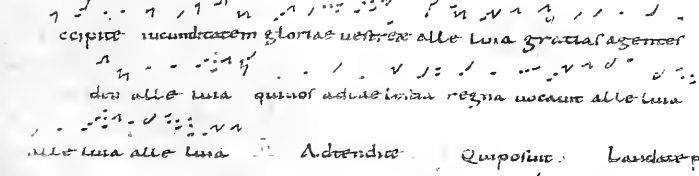 ccipite iucunditatem gloriae uestrae alle luia gratias agentes
dō alle luia qui uos ad caelestia regna uocauit alle luia
alle luia alle luia Adtendite Qui posuit Laudate p